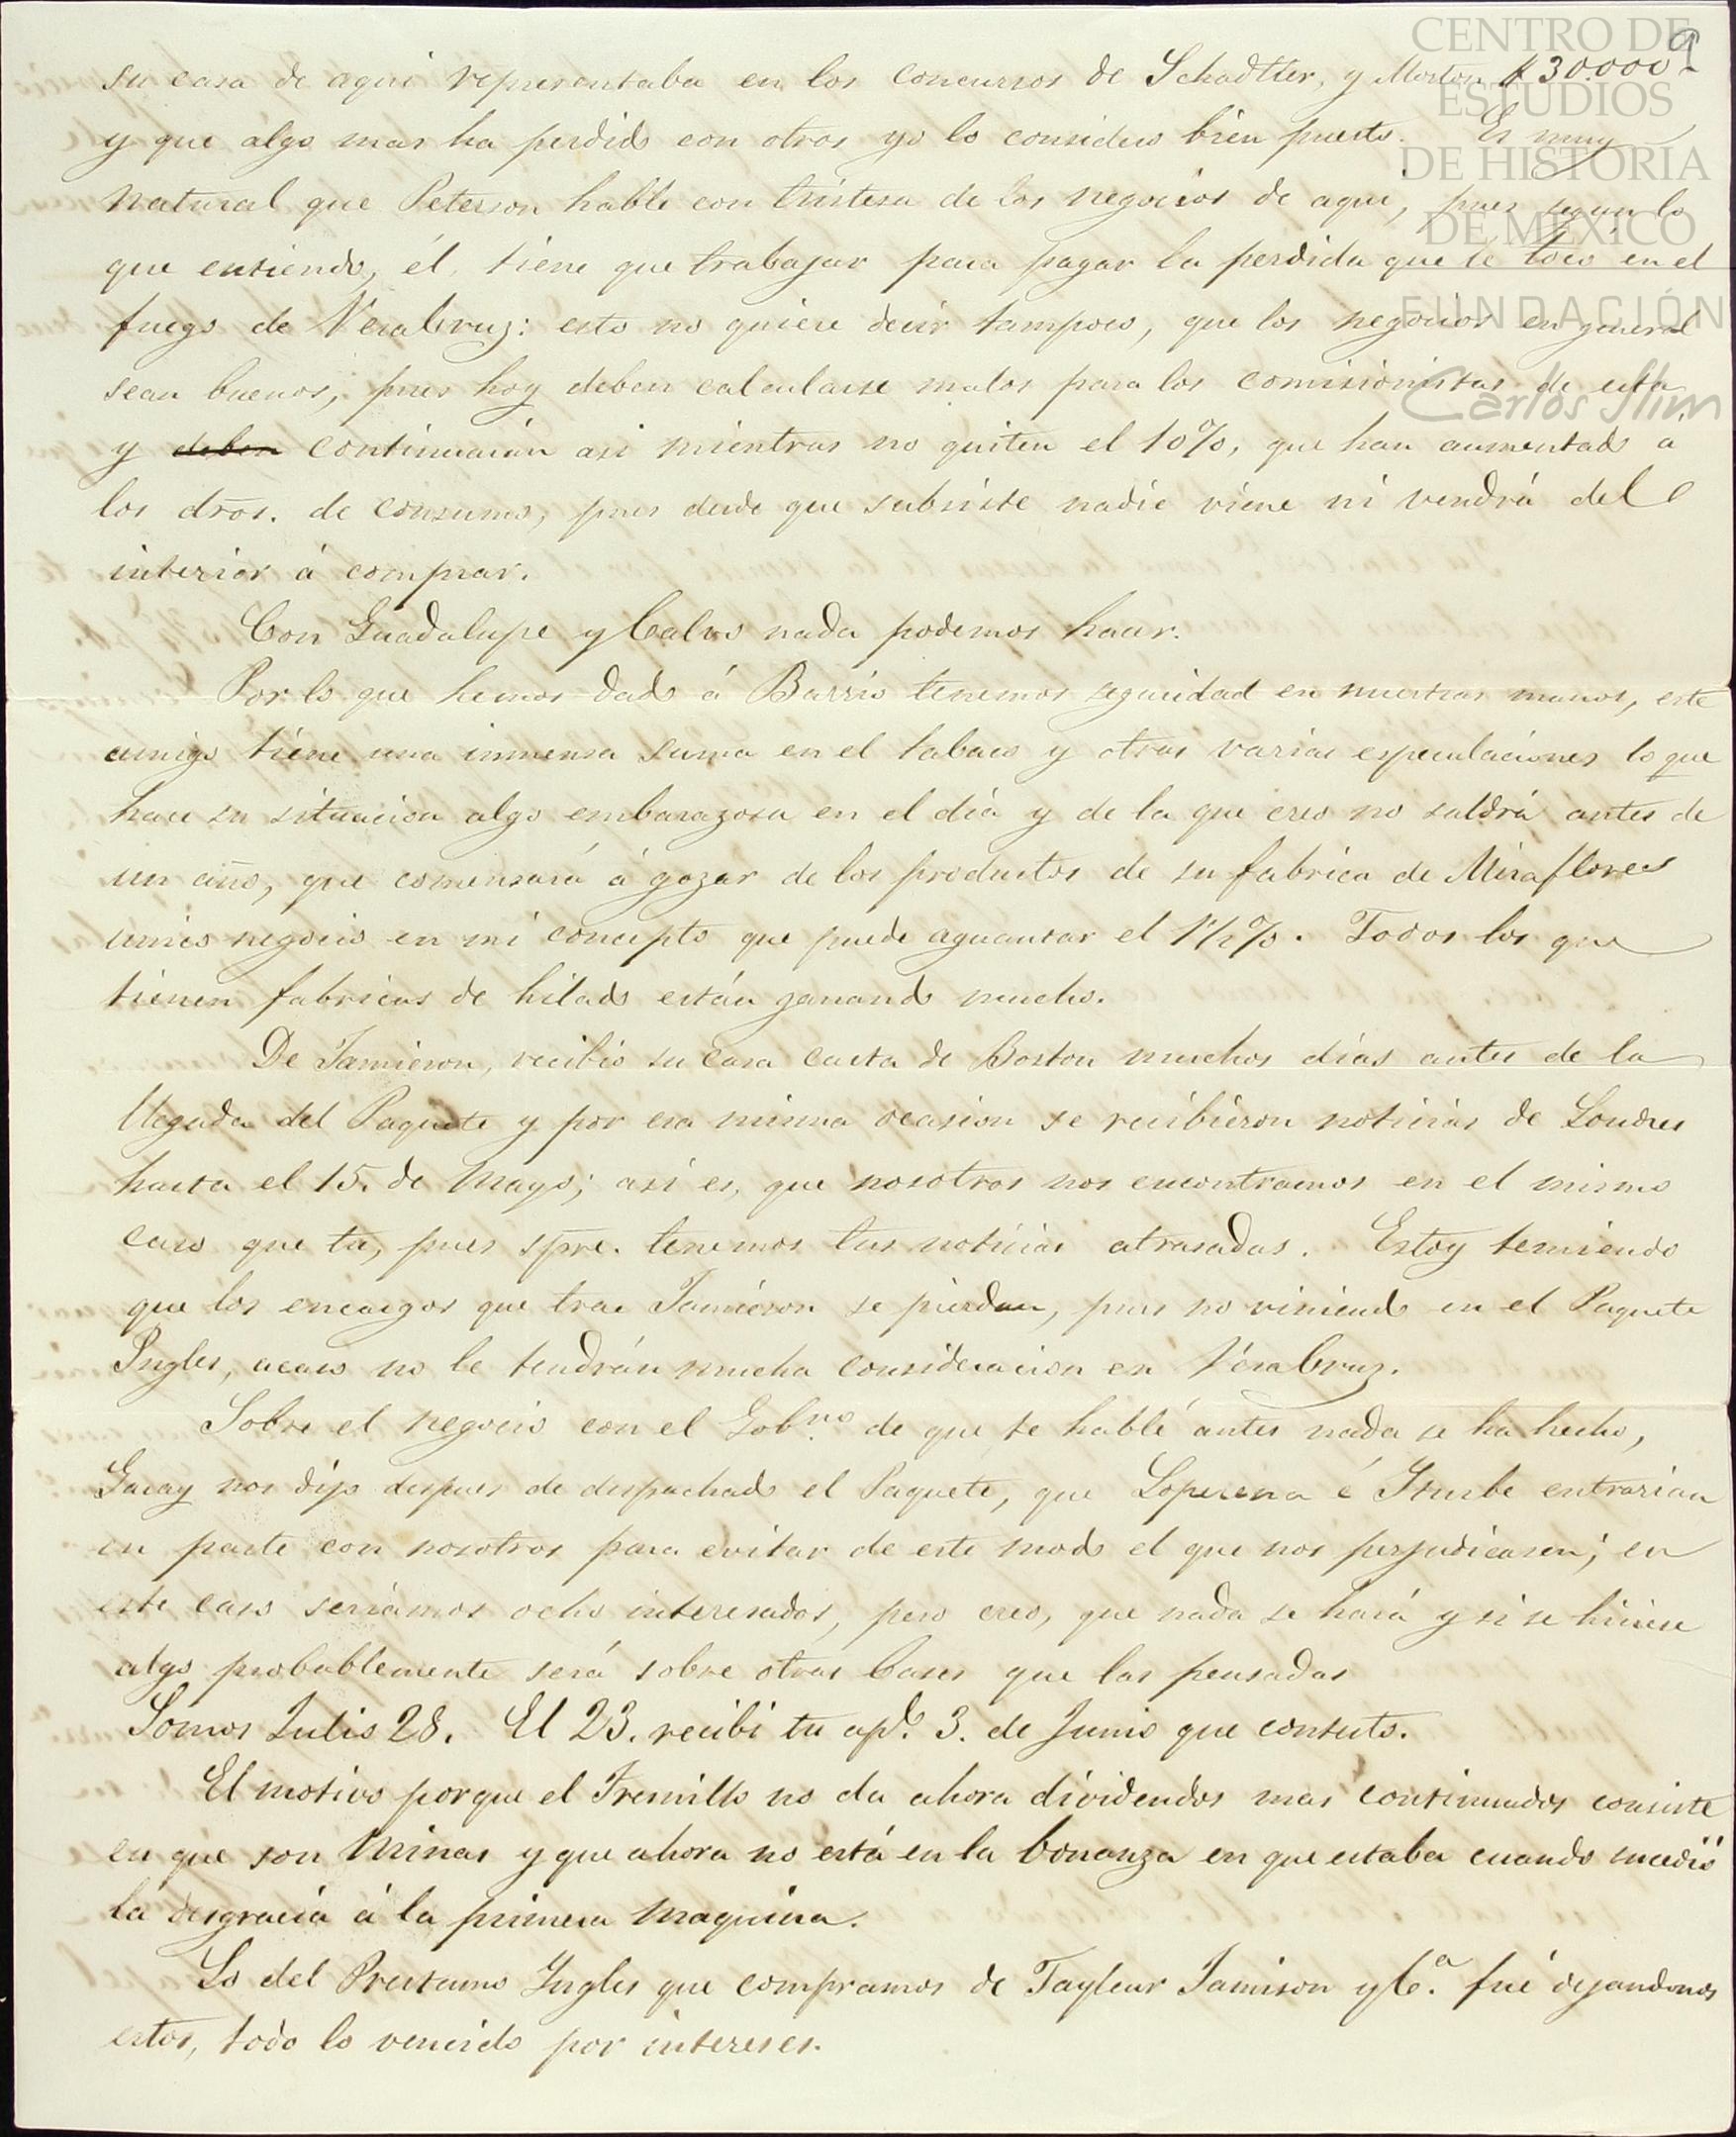 9
su casa de aqui representaba en los concursos de Schadtler, y Morton $30.000
y que algo mas ha perdido con otros yo lo considero bien puesto. Es muy
natural que Peterson hable con tristesa de los negocios de aqui, pues segun lo
que entiendo, él, tiene que trabajar para pagar la perdida que le tocó en el
fuego de VeraCruz: esto no quiere decir tampoco, que los negocios en general
sean buenos, pues hoy deben calcularse malos para los comisionistas de esta
y deben continuarán asi mientras no quiten el 10%, que han aumentado á
los dros. de consumo, pues desde que subsiste nadie viene ni vendrá del
interior á comprar.
Con Guadalupe y Calvo nada podemos hacer.
Por lo que hemos dado á Barrio tenemos seguridad en nuestras manos, este
amigo tiene una inmensa suma en el tabaco y otras varias especulaciones lo que
hace su situacion algo embarazosa en el dia y de la que creo no saldrá antes de
un año, que comensará á gozar de los productos de su fabrica de Miraflores
unico negocio en mi concepto que puede aguantar el 1½%. Todos los que
tienen fabricas de hilado están ganando mucho.
De Jamieson, recibió su casa carta de Boston muchos dias antes de la
llegada del Paquete y por esa misma ocasion se recibieron noticias de Londres
hasta el 15. de Mayo; asi es, que nosotros nos encontramos en el mismo
caso que tu, pues spre. tenemos tus noticias atrasadas. Estoy temiendo
que los encargos que trae Jamieson se pierdan, pues no viniendo en el Paquete
Ingles, acaso no le tendrán mucha consideracion en VeraCruz.
Sobre el negocio con el Gobno. de que te hablé antes nada se ha hecho,
Garay nos dijo despues de despachado el Paquete, que Loperena é Iturbe entrarian
en parte con nosotros para evitar de este modo el que nos perjudicasen; en
este caso seriamos ocho interesados, pero creo, que nada se hará y si se hiciese
algo probablemente será sobre otras bases que las pensadas
Somos Julio 28. El 23. recibi tu apda. 3. de Junio que contesto.
El motivo porque el Fresnillo no da ahora dividendos mas continuados consiste
en que son Minas y que ahora no está en la bonanza en que estaba cuando sucedió
la desgracia á la primera Maquina.
Lo del Prestamo Ingles que compramos de Tayleur Jamison y Ca. fué dejandonos
estos, todo lo vencido por intereses.
CENTRO DE
ESTUDIOS
DE HISTORIA
DE MÉXICO
FUNDACIÓN
Carlos Slim